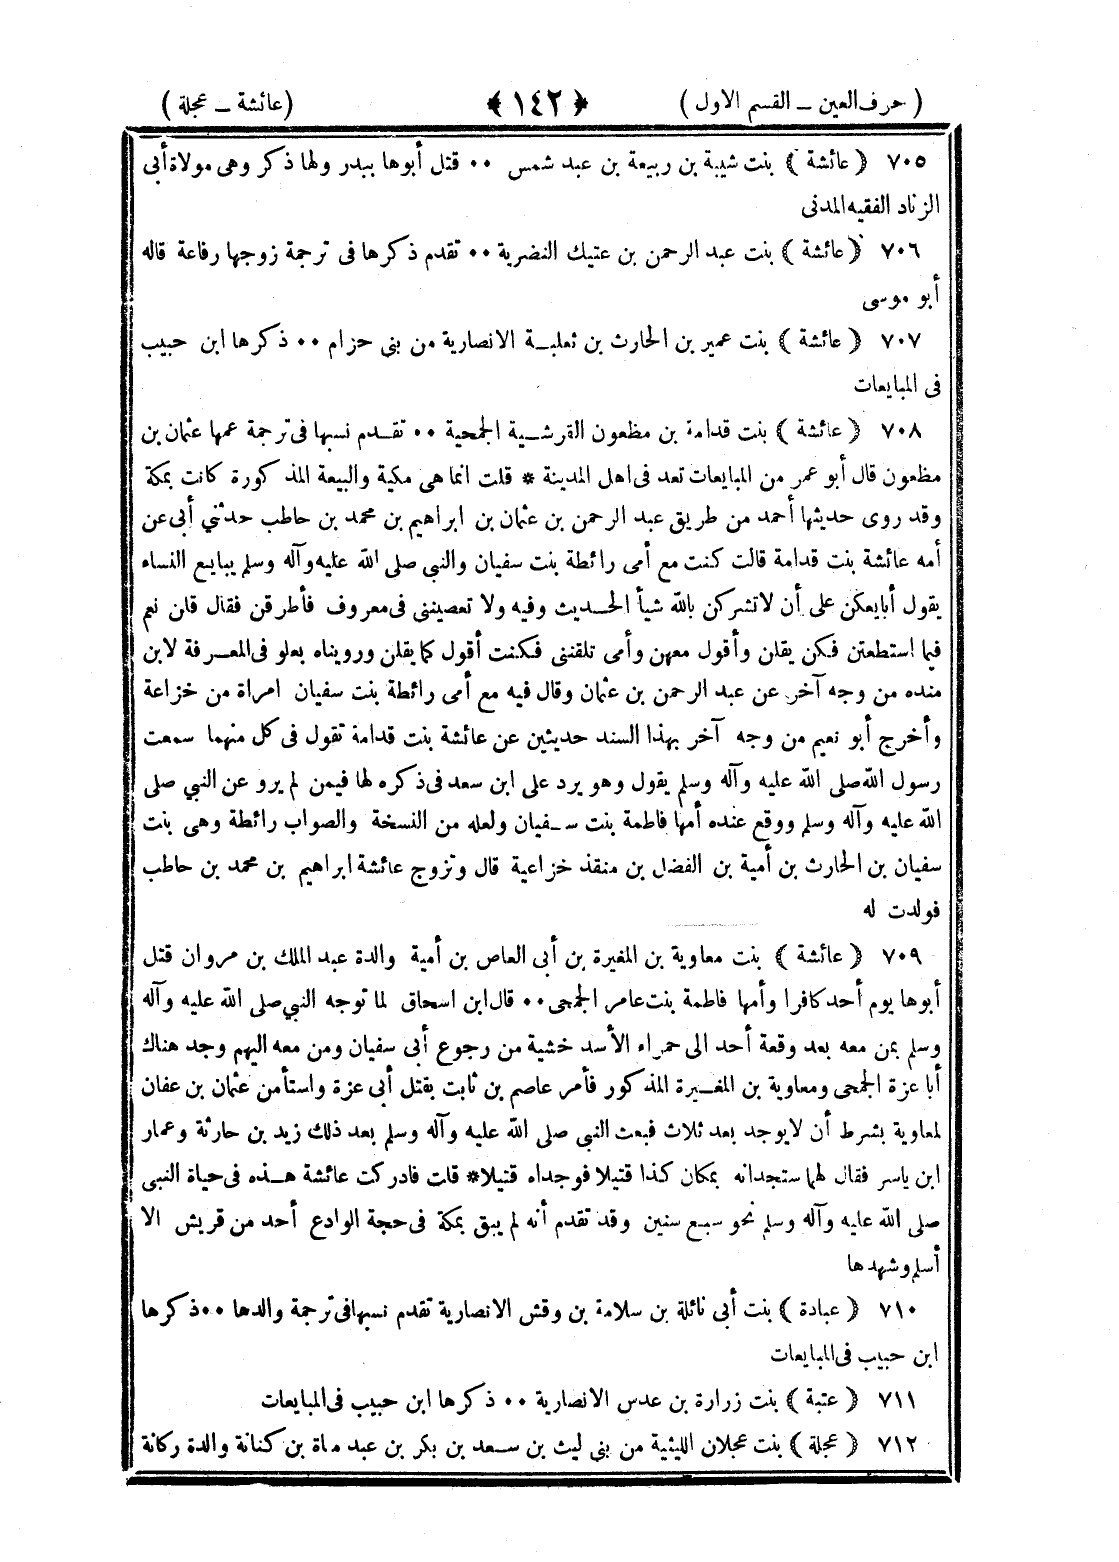 ( حرف العين ـ القسم الاول ) ﴿ ١٤٢ ﴾ ( عائشة ـ عجلة )
٧٠٥ ( عائشة ) بنت شيبة بن ربيعة بن عبد شمس ٠٠ قتل أبوها ببدر ولها ذكر وهى مولاة أبى
الزناد الفقيه المدنى
٧٠٦ ( عائشة ) بنت عبد الرحمن بن عتيك النضرية ٠٠ تقدم ذكرها فى ترجمة زوجها رفاعة قاله
أبو موسى
٧٠٧ ( عائشة ) بنت عمير بن الحارث بن ثعلبـة الانصارية من بنى حزام ٠٠ ذكرها ابن حبيب
فى المبايعات
٧٠٨ ( عائشة ) بنت قدامة بن مظعون القرشـية الجمحية ٠٠ تقـدم نسبها فى ترجمة عمها عثمان بن
مظعون قال أبو عمر من المبايعات تعد فى اهل المدينة * قلت انما هى مكية والبيعة المذكورة كانت بمكة
وقد روى حديثها أحمد من طريق عبد الرحمن بن عثمان بن ابراهيم بن محمد بن حاطب حدثني أبى عن
أمه عائشة بنت قدامة قالت كنت مع أمى رائطة بنت سفيان والنبى صلى الله عليه وآله وسلم يبايع النساء
يقول أبايعكن على أن لا تشركن بالله شيأ الحـديث وفيه ولا تعصيننى فى معروف فأطرقن فقال قان نعم
فيما استطعتن فكن يقلن وأقول معهن وأمى تلقننى فكنت أقول كما يقلن ورويناه بعلو فى المعـرفة لابن
منده من وجه آخر عن عبد الرحمن بن عثمان وقال فيه مع أمى رائطة بنت سفيان امرأة من خزاعة
وأخرج أبو نعيم من وجه آخر بهذا السند حديثين عن عائشة بنت قدامة تقول فى كل منهما سمعت
رسول الله صلى الله عليه وآله وسلم يقول وهو يرد على ابن سعد فى ذكره لها فيمن لم يرو عن النبي صلى
الله عليه وآله وسلم ووقع عنده أمها فاطمة بنت سـفيان ولعله من النسخة والصواب رائطة وهى بنت
سفيان بن الحارث بن أمية بن الفضل بن منقذ خزاعية قال وتزوج عائشة ابراهيم بن محمد بن حاطب
فولدت له
٧٠٩ ( عائشة ) بنت معاوية بن المغيرة بن أبى العاص بن أمية والدة عبد الملك بن مروان قتل
أبوها يوم أحد كافرا وأمها فاطمة بنت عامر الجمحى ٠٠ قال ابن اسحاق لما توجه النبي صلى الله عليه وآله
وسلم بمن معه بعد وقعة أحد الى حمراء الأسد خشية من رجوع أبى سفيان ومن معه اليهم وجد هناك
أبا عزة الجمحى ومعاوية بن المغـيرة المذكور فأمر عاصم بن ثابت بقتل أبى عزة واستأمن عثمان بن عفان
لمعاوية بشرط أن لا يوجد بعد ثلاث فبعث النبي صلى الله عليه وآله وسلم بعد ذلك زيد بن حارثة وعمار
ابن ياسر فقال لهما ستجدانه بمكان كذا قتيلا فوجداه قتيلا* قلت فادركت عائشة هـذه فى حياة النبى
صلى الله عليه وآله وسلم نحو سبع سنين وقد تقدم أنه لم يبق بمكة فى حجة الوادع أحد من قريش الا
أسلم وشهدها
٧١٠ ( عبادة ) بنت أبى نائلة بن سلامة بن وقش الانصارية تقدم نسبها فى ترجمة والدها ٠٠ ذكرها
ابن حبيب فى المبايعات
٧١١ ( عتبة ) بنت زرارة بن عدس الانصارية ٠٠ ذكرها ابن حبيب فى المبايعات
٧١٢ ( عجلة ) بنت عجلان الليثية من بنى ليث بن سـعد بن بكر بن عبد مناة بن كنانة والدة ركانة